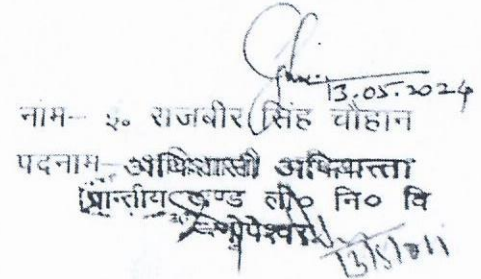 13.05.2024
नाम- इं० राजबीर सिंह चौहान
पदनाम- अधिशासी अभियन्ता
प्रान्तीय खण्ड लो० नि० वि
गोपेश्वर